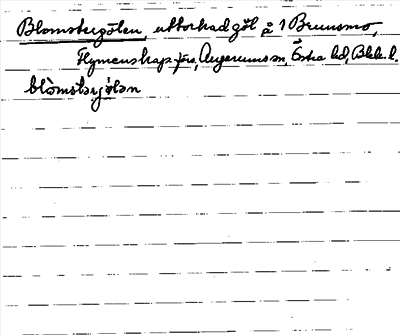 Blomstergölen, uttorkad göl å 1 Brunsmo,
Flymenskap för, Augerums sn, Östra hd, Blek. l.
blòmstərjǿlən